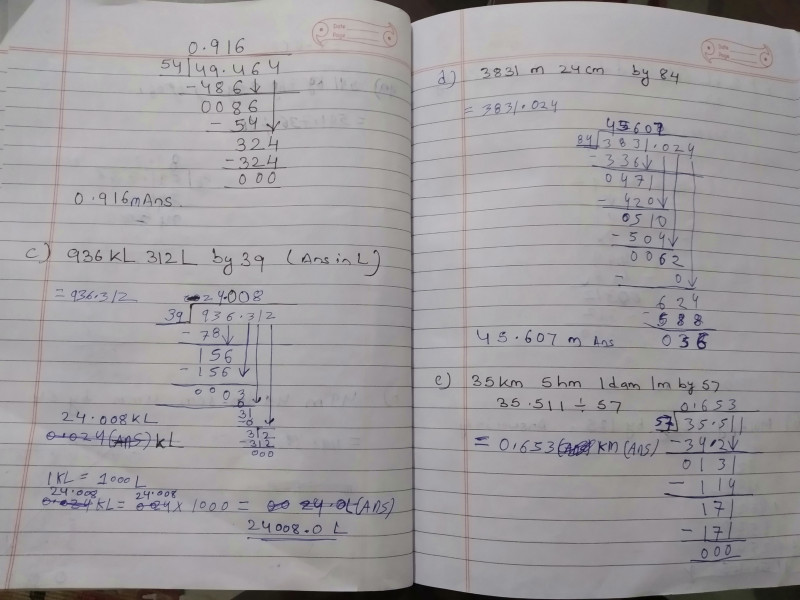 Date
Page
0.916
54 49.464
- 486
0086
- 54
324
- 324
000
0.916m Ans.
c) 936 KL 312 L by 39 (Ans in L)
= 936.312
24.008
39 936.312
- 78
156
- 156
0003
0
31
- 0
312
- 312
000
24.008 KL
0.024 (Ans) KL
1 KL = 1000 L
24.008 24.008
0.024 KL = 0.024 x 1000 = 24.0L (Ans)
24008.0 L
Date
Page
d) 3831 m 24 cm by 84
= 3831.024
45607
84 3831.024
- 336
0471
- 420
0510
- 504
0062
- 0
624
- 588
036
45.607 m Ans
e) 35 km 5 hm 1 dam 1 m by 57
35.511 ÷ 57
0.653
57 35.511
- 34.2
0131
- 114
171
- 171
000
= 0.653 KM (Ans)